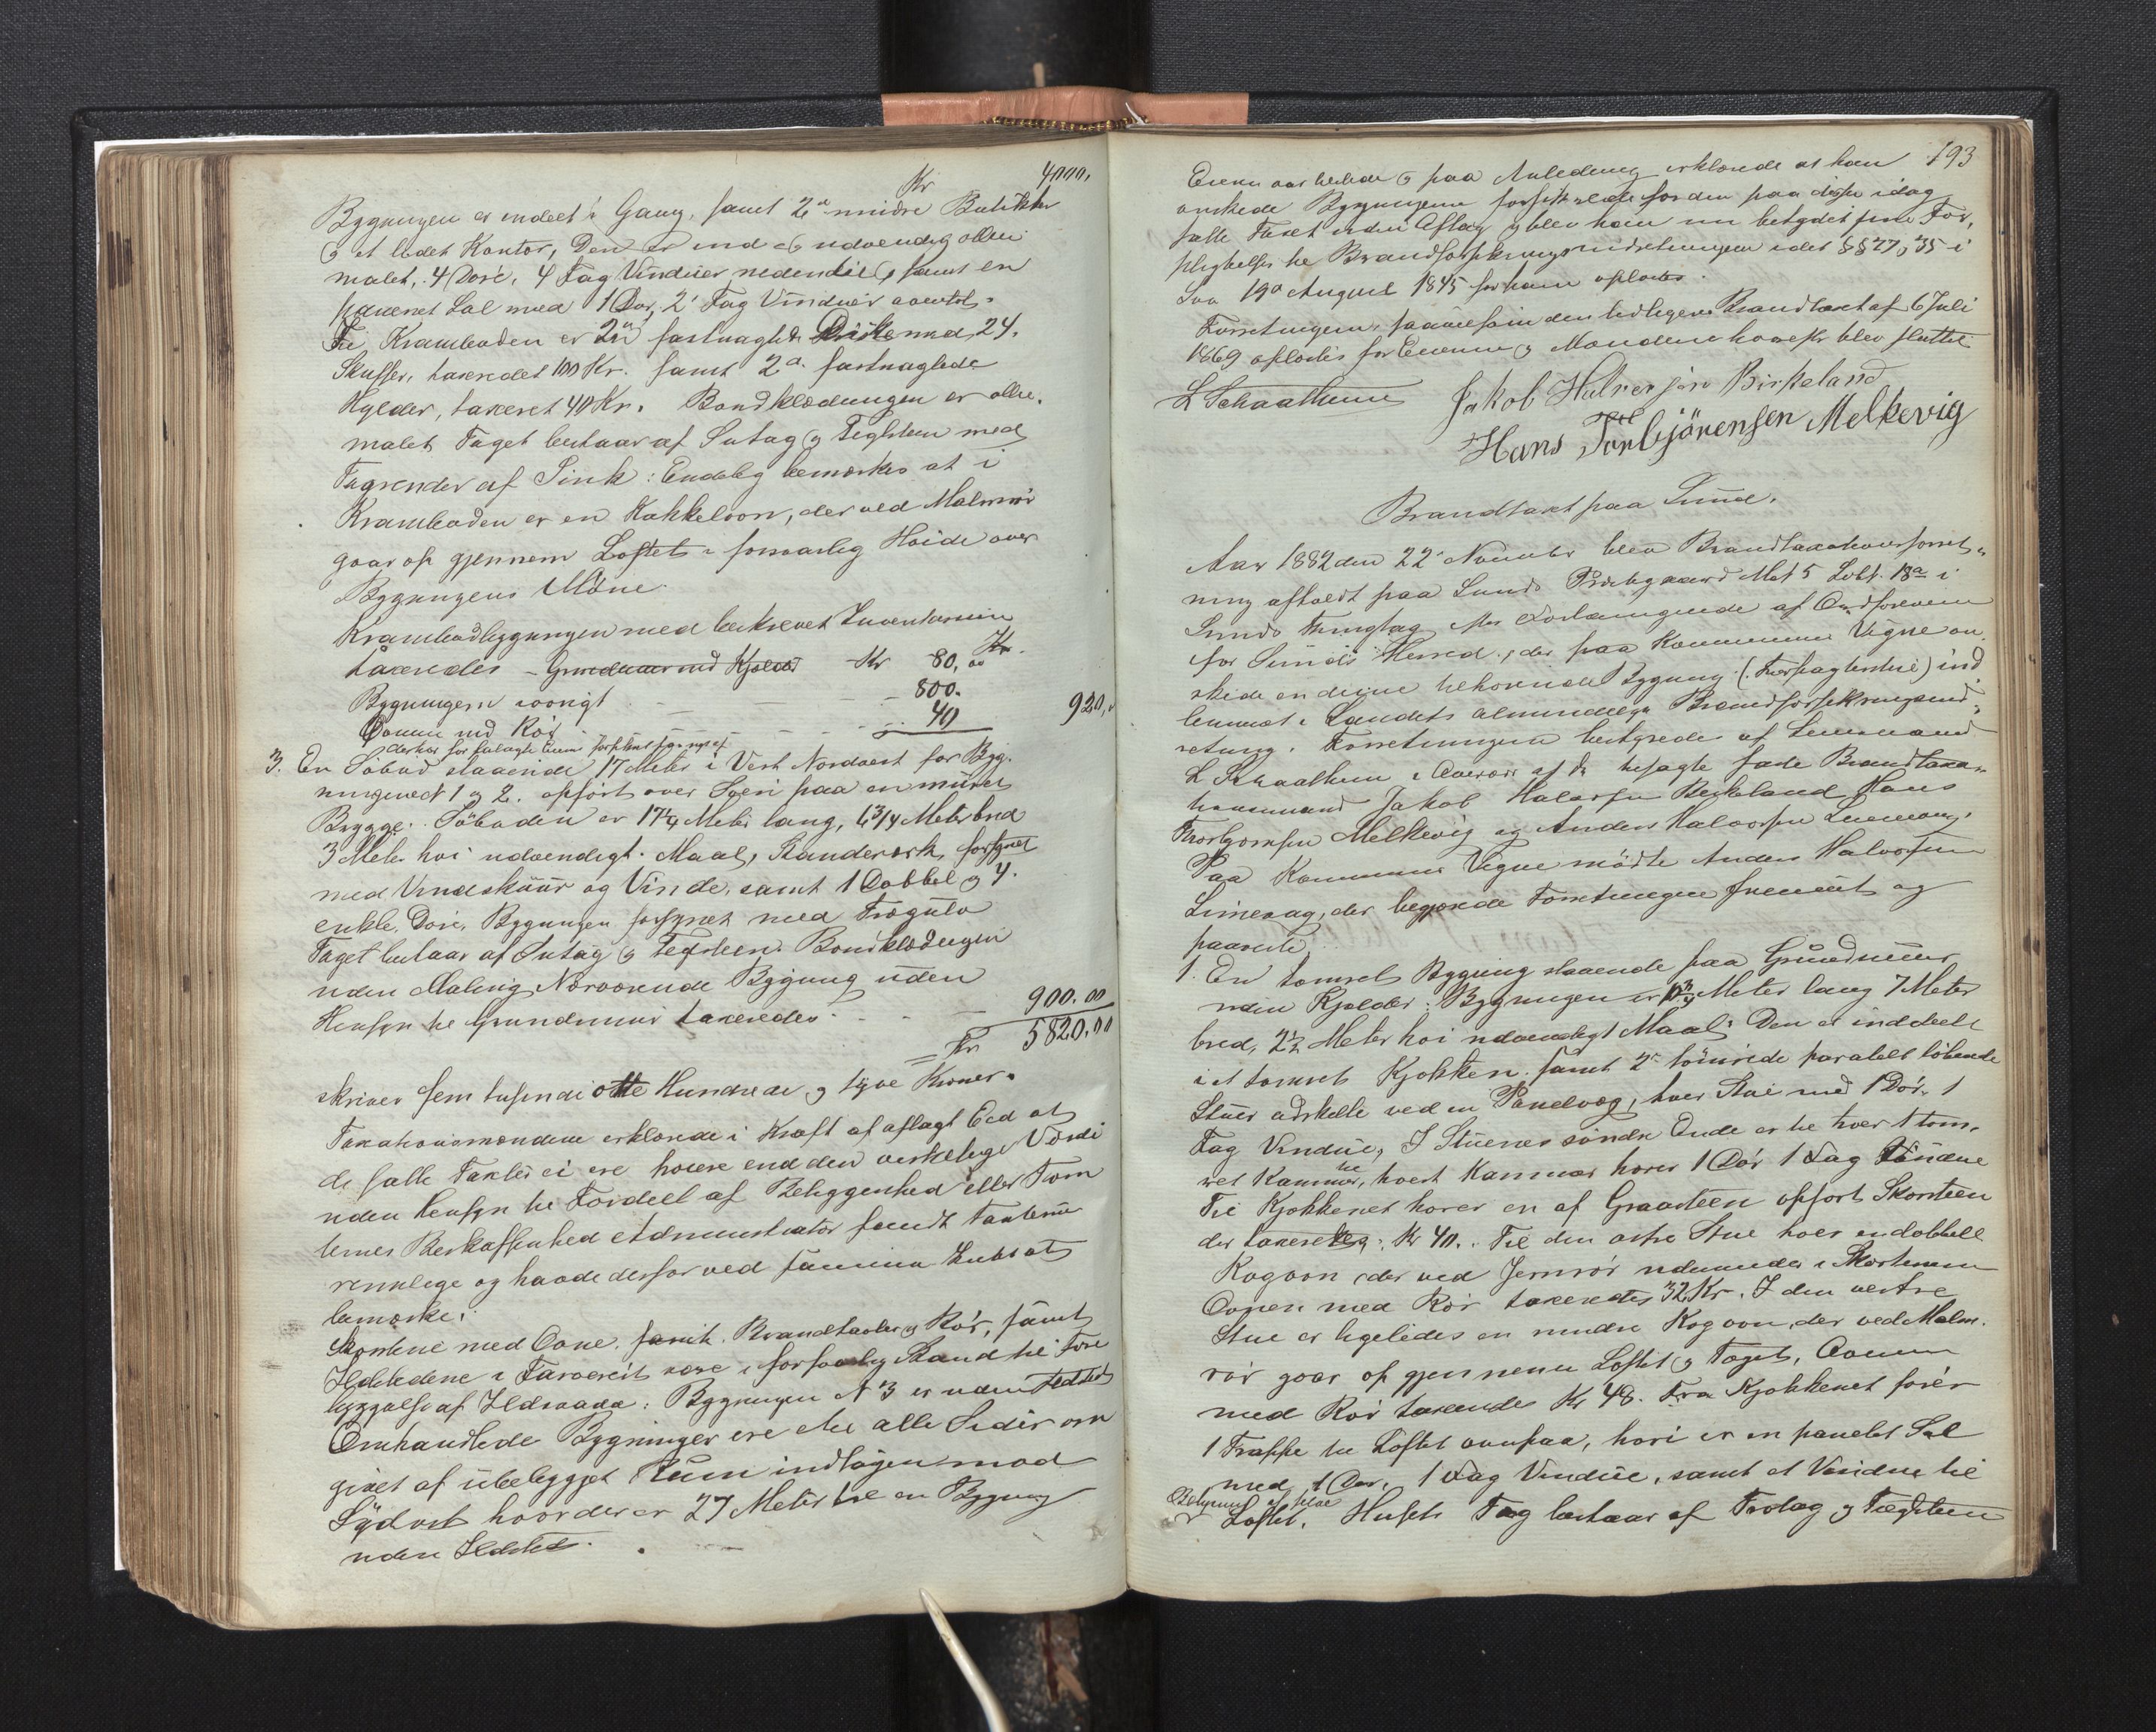 Kr 4000.
Bygningen er indeelt i Gang, samt 2de mindre Butikker
og et lidet Kontor, Den er ind og udvendig olie-
malet, 4 Döre, 4 Fag Vinduer nedentil og samt en
panenet Sal med 1 Dör, 2 Fag Vinduer oventil.
Til Kramboden er 2de fastnaglede Diske med 24.
Skuffer, taxeredes 100 Kr. samt 2de fastnaglede
Hylder, taxeret 40 Kr. Bordklædningen er olie-
malet Taget bestaar af Sutag og Teglsteen med
Tagrender af Sink: Endelig bemærkes at i
Kramboden er en Kakkelovn, der ved Malmrör
gaar op gjennem Loftet i forsvarlig Höide over
Bygningens Möne.
Krambodbygningen med beskrevet Inventarium
taxeredes - Grundmuur med Kjelder Kr 80,00 Kr.
Bygningen iövrigt - - - 800.
Ovnen med Rör - - - 40 920,
3. En Söbod staaende 17 Meter i Vest Nordvest for Byg-
ningerne No 1 og 2. opfört over Söen paa en muret
Brygge. Söboden er 17¼ Meter lang, 6¾ Meter bred
3 Meter höi udvendigt Maal, Standerverk, forsynet
med Vindskuur og Vinde, samt 1 Dobbel og 4.
enkle Döre, Bygningen forsynet med Trægulv
Taget bestaar af Sutag og Teglsteen. Bordklædningen
uden Maling, Nærværende Bygning uden
Hensyn til Grundmuur taxeredes - - - 900.00
Kr 5820,00
skriver fem tusende otte Hundrede og tyve Kroner.
Taxationsmændene erklærede i Kraft af aflagt Eed at
de satte Taxter ei ere höiere end den virkelige Værdi
uden Hensyn til Fordeel af Beliggenhed eller Tom-
ternes Beskaffenhed Administrator fandt Taxterne
rimelige og havde derfor ved samme Intet at
bemærke.
Skorstene med Ovne, samt Brandtavler og Rör, samt
Ildstedene i Farveriet vare i forsvarlig Stand til Fore
byggelse af Ildsvaade: Bygningen No 3 er uden Ildsted
Omhandlede Bygninger ere til alle Sider om
givet af ubebygget Rum indtagen mod
Sydvest hvor der er 27 Meter til en Bygning
uden Ildsted.
193
Eieren var tilstede og paa Anledning erklærede at han
önskede Bygningerne forsikrede for den paa disse idag
satte Taxt uden Aftag og blev han nu betydet sine For-
pligtelser til Brandforsikringsindretningen idet §§ 27 og 35 i
Lov 19de August 1845 for ham oplæstes.
Forretningen, saavelsom den tidligere Brandtaxt af 6 Juli
1869 oplæstes for Eieren og Mændene hvorefter blev sluttet
L Schaathuun Jakob Halvorsen Birkeland
Hans Torbjörensen Melkevig
Brandtaxt paa Sunde.
Aar 1882 den 22 November blev Brandtaxationsforret-
ning afholdt paa Sunde Præstegaard Mat 5 Löbt. 18a i
Sunds Thinglag efter Forlangende af Ordföreren
for Sunds Herred, der paa Kommunens Vegne ön-
skede en denne tilhörende Bygning (Forpagterstue) ind
lemmet i Landets almindelige Brandforsikringsind-
retning. Forretningen bestyredes af Lensmand
L Schaathuun i Overvær af de besagte faste Brandtaxa-
tionsmænd Jakob Halvorsen Birkeland Hans
Thorbjörnsen Melkevig og Anders Halvorsen
Paa Kommunens Vegne mödte Anders Halvorsen
der begjærede Forretningen fremmet og
paaviste
1. En tömret Bygning staaende paa Grundmuur
uden Kjelder: Bygningen er 10¾ Meter lang 7 Meter
bred, 2½ Meter höi udvendigt Maal: Den er inddeelt
i et tömret Kjökken samt 2de tömrede paralelt löbende
Stuer adskilte ved en Panelvæg, hver Stue med 1 Dör, 1
Fag Vindue, I Stuenes söndre Ende er til hver 1 töm-
ret Kammer, til hvert Kammer hörer 1 Dör 1 Fag Vindue
Til Kjökkenet hörer en af Graasteen opfört Skorsteen
der taxeredes: Kr 40. Til den östre Stue hörer en dobbelt
Kogovn der ved Jernrör udmunder i Skorstenen
Ovnen med Rör taxeredes 32 Kr. I den vestre
Stue er ligeledes en mindre Kogovn, der ved Malm-
rör gaar op gjennem Loftet og Taget, Ovnen
med Rör taxeredes Kr 48. Fra Kjökkenet förer
1 Trappe til Loftet ovenpaa, hvori er en panelet Sal
med 1 Dör, 1 Fag Vindue, samt et Vindue til
Loftet. Husets Tag bestaar af Trotag og Teglsteen